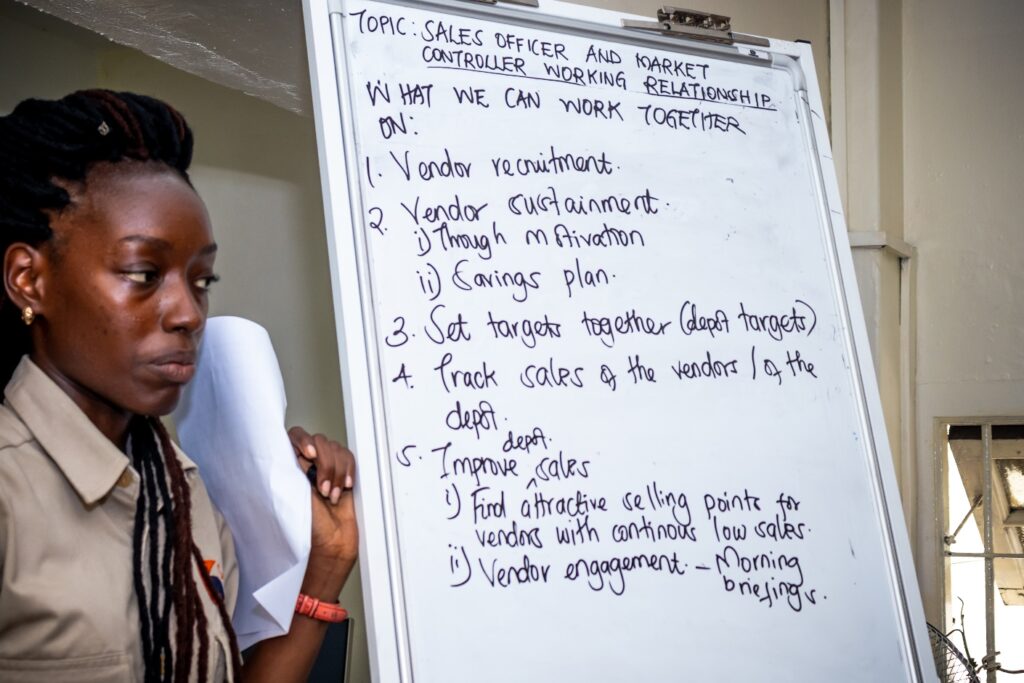 TOPIC: SALES OFFICER AND MARKET
CONTROLLER WORKING RELATIONSHIP.
WHAT WE CAN WORK TOGETHER
ON:
1. Vendor recruitment.
2. Vendor sustainment.
i) Through motivation
ii) Savings plan.
3. Set targets together (depot targets)
4. Track sales of the vendors / of the
depot.
5. Improve depot sales
i) Find attractive selling points for
vendors with continous low sales.
ii) Vendor engagement. – Morning
briefings.